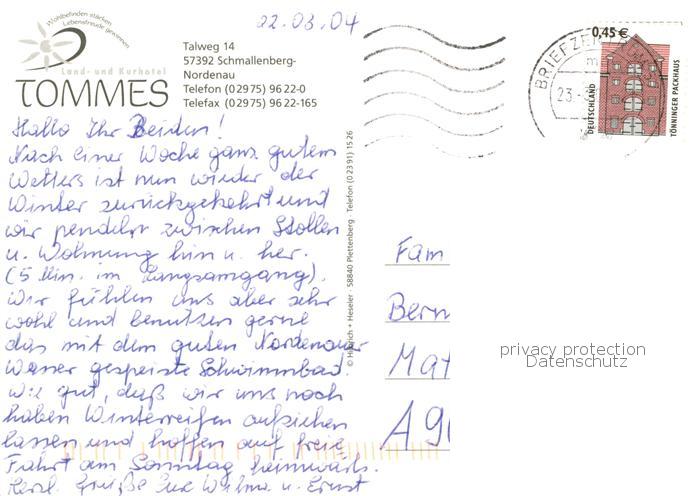 22.03.04
Wohlbefinden stärken
Lebensfreude gewinnen
Land- und Kurhotel
TOMMES
Talweg 14
57392 Schmallenberg-
Nordenau
Telefon (0 29 75) 96 22-0
Telefax (0 29 75) 96 22-165
Hallo Ihr Beiden!
Nach einer Woche ganz gutem
Wetters ist nun wieder der
Winter zurückgekehrt und
wir pendeln zwischen Stollen
u. Wohnung hin u. her.
(5 Min. im Langsamgang).
Wir fühlen uns aber sehr
wohl und benutzen gerne
das mit dem guten Nordenauer
Wasser gespeiste Schwimmbad.
Wie gut, daß wir uns noch
haben Winterreifen aufziehen
lassen und hoffen auf freie
Fahrt am Sonntag heimwärts.
Herzl. Grüße Eure Wilma u. Ernst
© Hinrich + Heseler · 58840 Plettenberg · Telefon (0 23 91) 15 26
BRIEFZEN
23.-
0,45 €
DEUTSCHLAND
TÖNNINGER PACKHAUS
Fam
Bern
Mat
A 9
privacy protection
Datenschutz